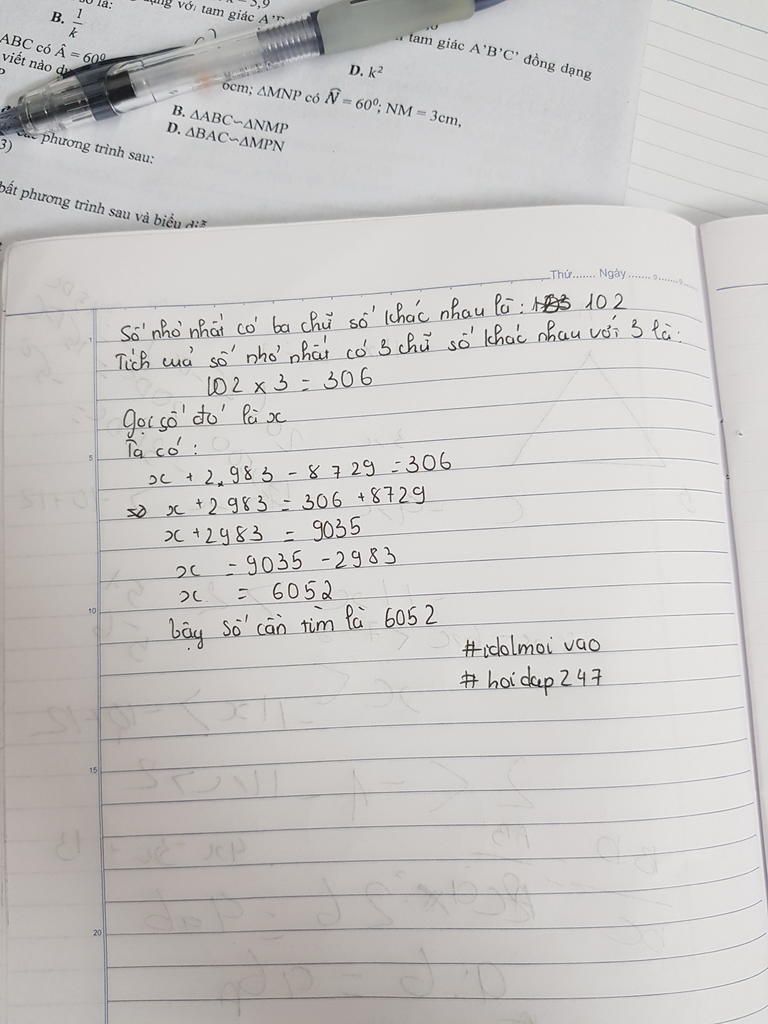 B. 1/k
ABC có Â = 60⁰
viết nào
tam giác A'B'C' đồng dạng
D. k²
6cm; ΔMNP có N̂ = 60⁰; NM = 3cm,
B. ΔABC∽ΔNMP
D. ΔBAC∽ΔMPN
phương trình sau:
3)
bất phương trình sau và biểu
Thứ....... Ngày
Số nhỏ nhất có ba chữ số khác nhau là: 102
Tích cuả số nhỏ nhất có 3 chữ số khác nhau với 3 là:
102 x 3 = 306
Gọi số đó là x
Ta có:
x + 2.983 - 8729 = 306
=> x + 2983 = 306 + 8729
x + 2983 = 9035
x = 9035 - 2983
x = 6052
Vậy số cần tìm là 6052
#idolmoi vao
# hoidap247
5
10
15
20